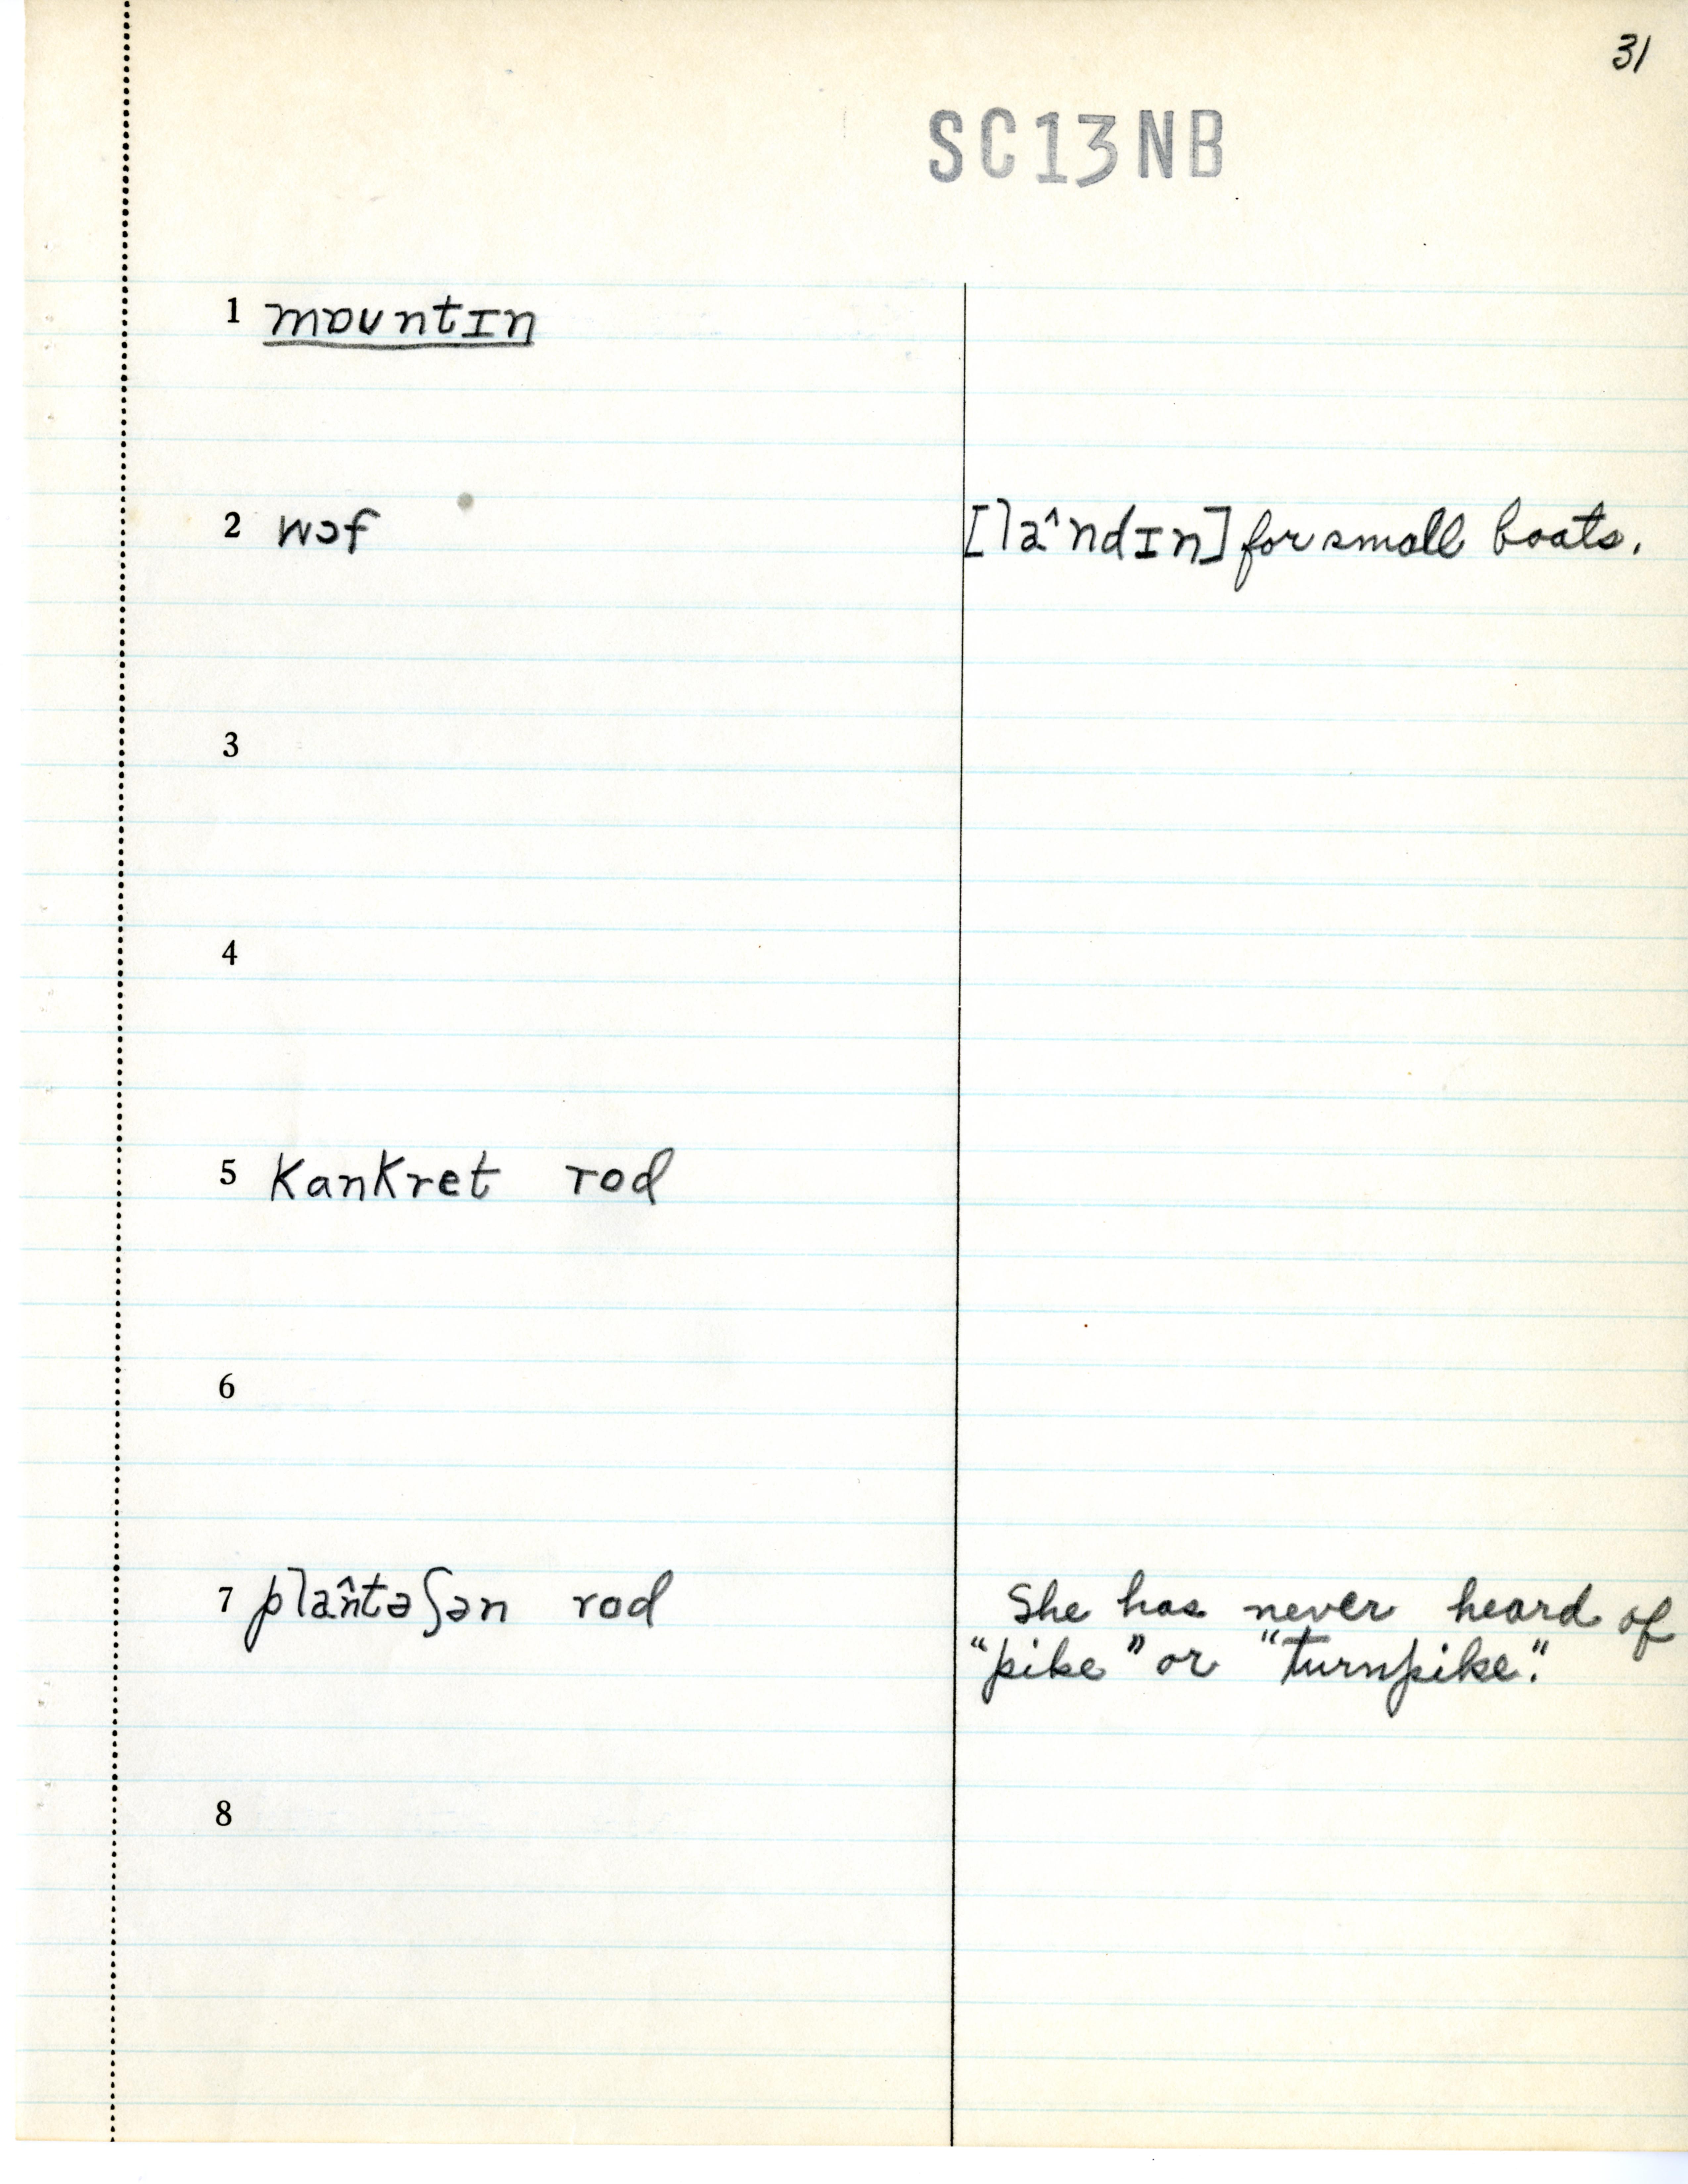 31
SC13NB
1 mɒʊntɪn
2 wɔf [la^ndɪn] for small boats.
3
4
5 kankret rod
6
7 pla^ntəʃən rod She has never heard of
"pike" or "turnpike."
8